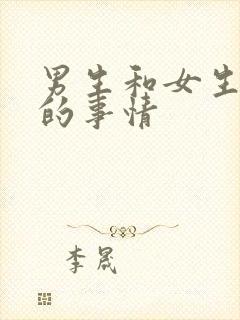 男生和女生
的事情
李晟